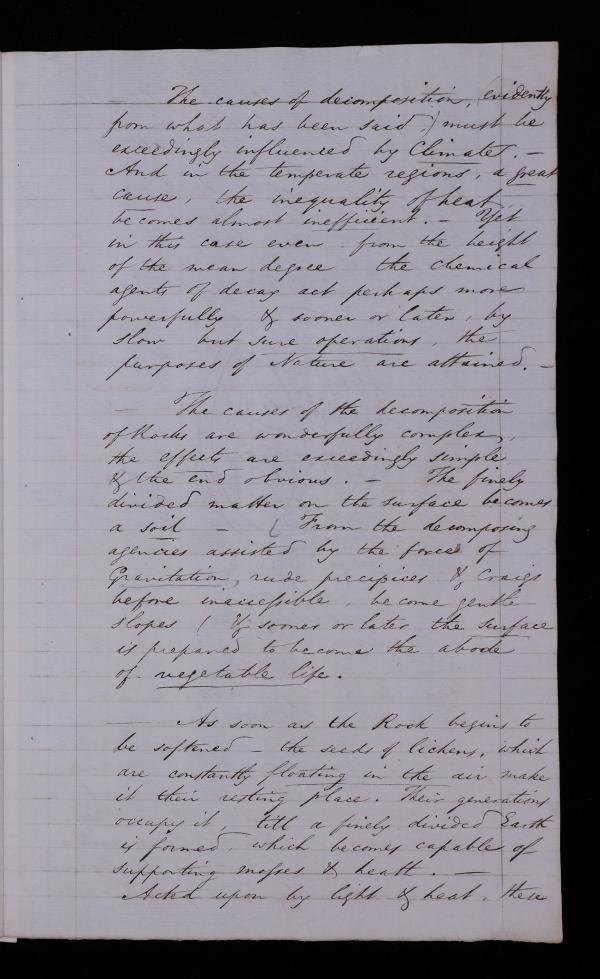 — The causes of decomposition, (evidently
from what has been said,) must be
exceedingly influenced by Climates. —
And in the temperate regions, a great
cause, the inequality of heat
becomes almost inefficient. — Yet
in this case even from the height
of the mean degree the chemical
agents of decay act perhaps more
powerfully & sooner or later, by
slow but sure operations, the
purposes of Nature are attained. —
— The causes of the decomposition
of Rocks are wonderfully complex,
the effects are exceedingly simple
& the end obvious. — The finely
divided matter on the surface becomes
a soil — From the decomposing
agencies assisted by the force of
Gravitation, rude precipices & Craigs
before inaccessible, become gentle
slopes ! & sooner or later the surface
is prepared to become the abode
of vegetable life.
— As soon as the Rock begins to
be softened — the seeds of lichens, which
are constantly floating in the air, make
it their resting place. Their generations
occupy it, till a finely divided Earth
is formed, which becomes capable of
supporting mosses & heath. —
Acted upon by light & heat, these